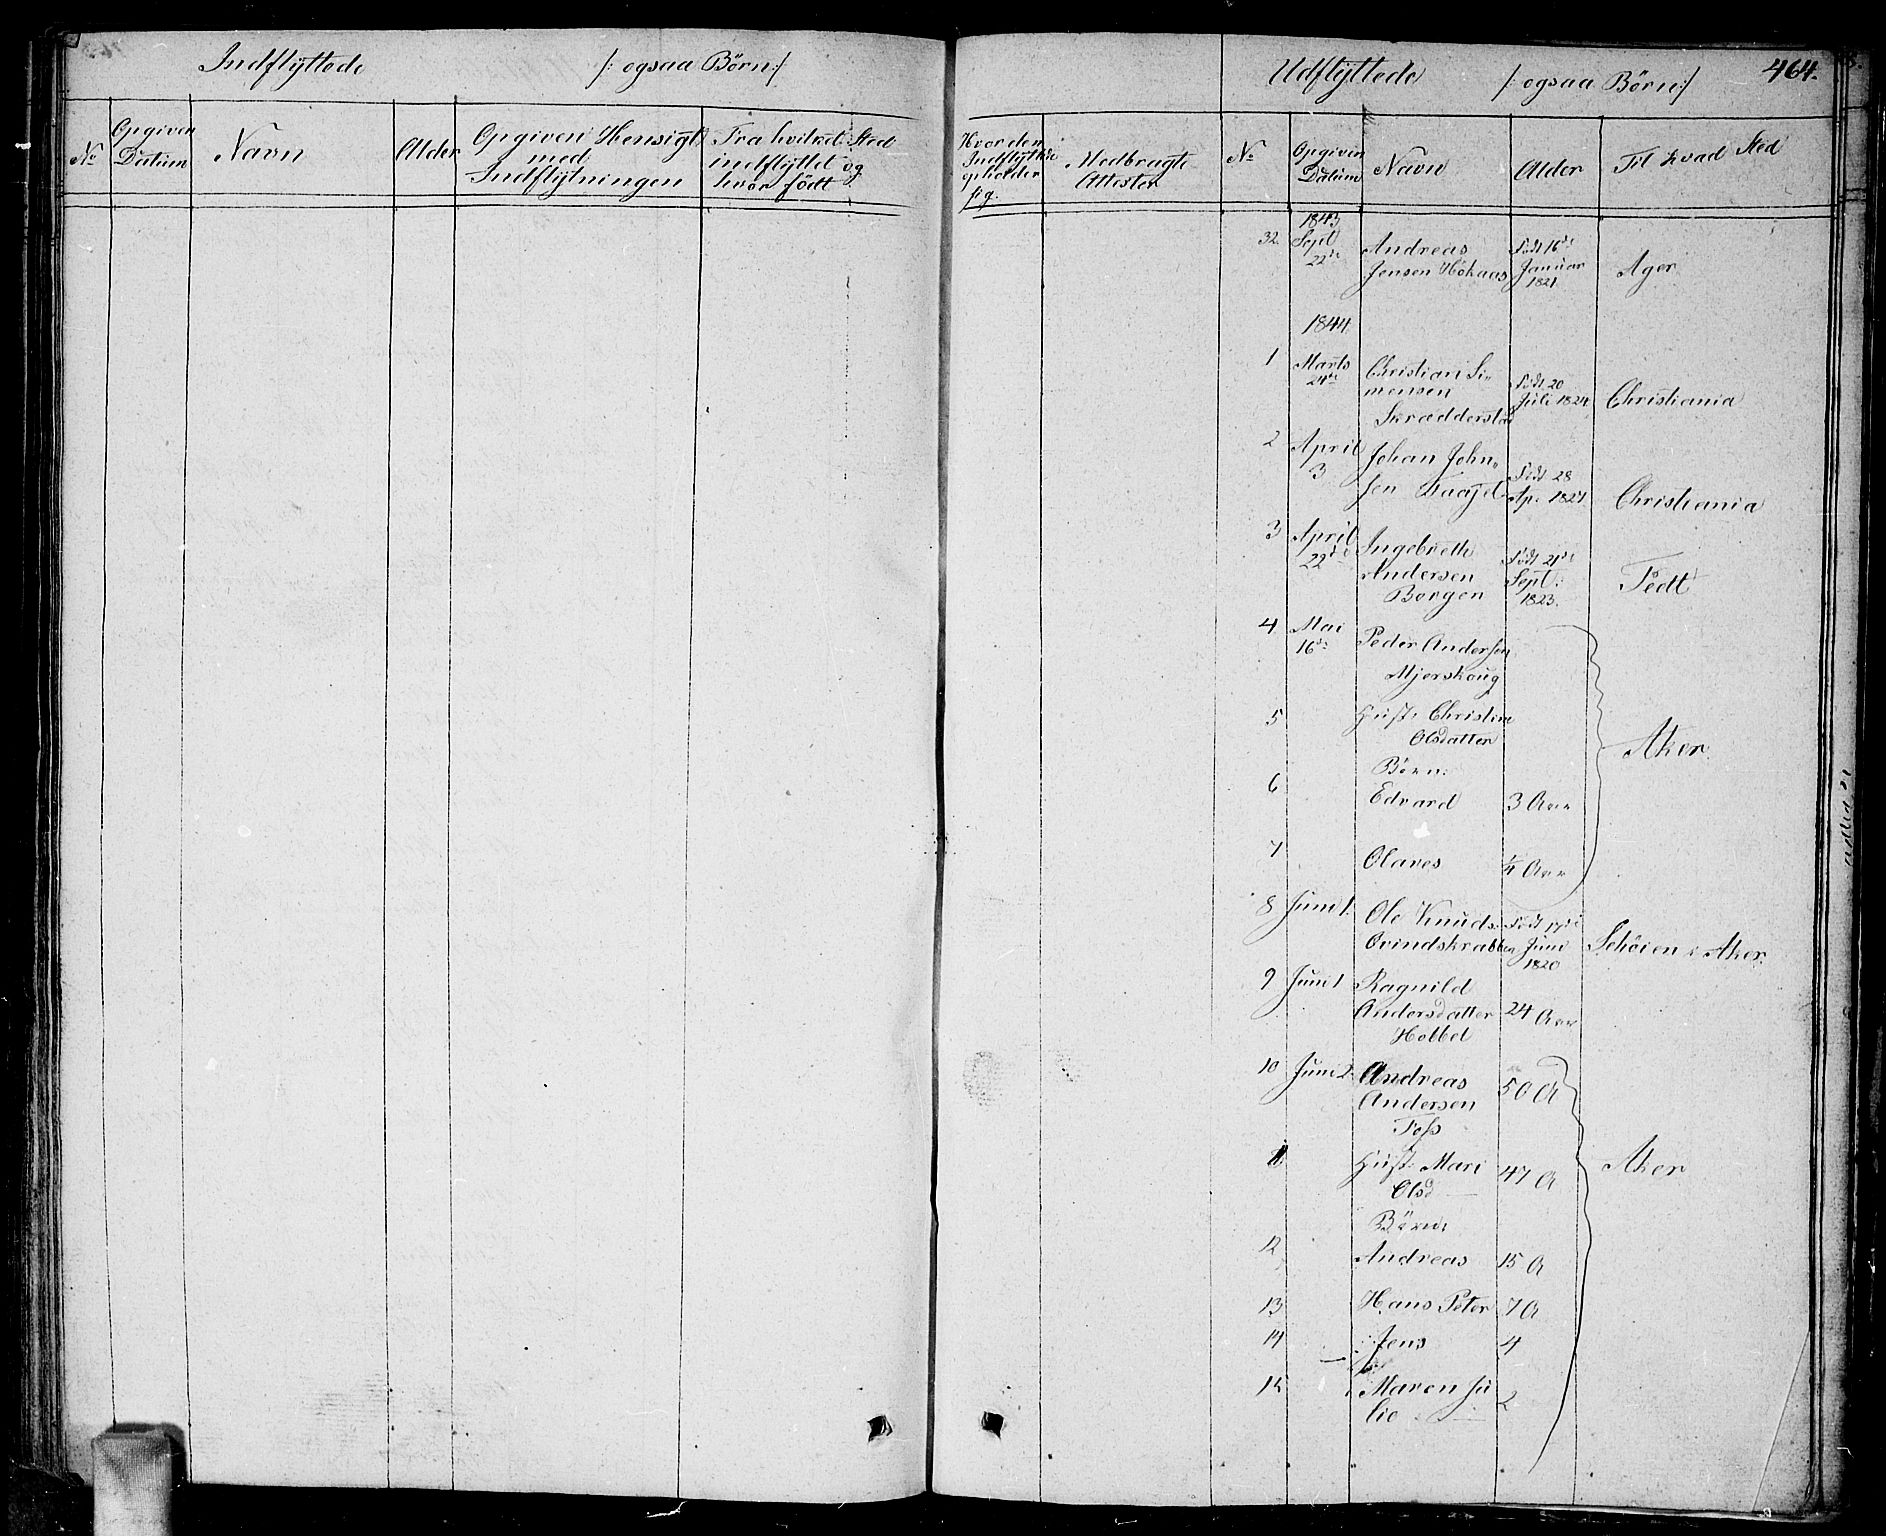 Indflyttede /: ogsaa Børn :/
No
Opgiven Datum
Navn
Alder
Opgiven Hensigt
med
Indflytningen
Fra hvilket Sted
indflyttet og
hvor födt
Hvor den
Indflyttede
opholder
sig.
Medbragte
Attester
Udflyttede /: ogsaa Börn :/ 464.
No
Opgiven
Datum
Navn
Alder
Til hvad Sted
1843
32. Sept 22de
Andreas
Jensen Hökaas
Födt 16de
Januar
1821
Ager
1844
1 Marts 24de
Christian Si-
mensen
Skrædderstad
Födt 20
Juli 1824
Christiania
2 April 3
Johan John-
sen
Födt 28
Ap. 1827
Christiania
3 April 22de
Ingebreth
Andersen
Borgen
Födt 21de
Sept:
1823.
4 Mai 16de
Peder Andersen
Mjerskoug
5 Hust: Christine
Olsdatter
Aker
Börn:
6 Edvard 3 Aar
7 Olaves 1/4 Aar
8 Juni 1.
Ole Knuds.
Ovindskrabben
Födt 17de
Juni
1820
Schöien i Aker.
9 Juni 1
Ragnild
Andersdatter
Hobbel
24 Aar
10 Juni 2
Andreas
Andersen
Foss
50 A
11 Hust. Mari
Olsd
47 A
Aker
Börn:
12 Andreas 15 A
13 Hans Peter 7 A
14 Jens 4
15 Maren Ju
lie
2